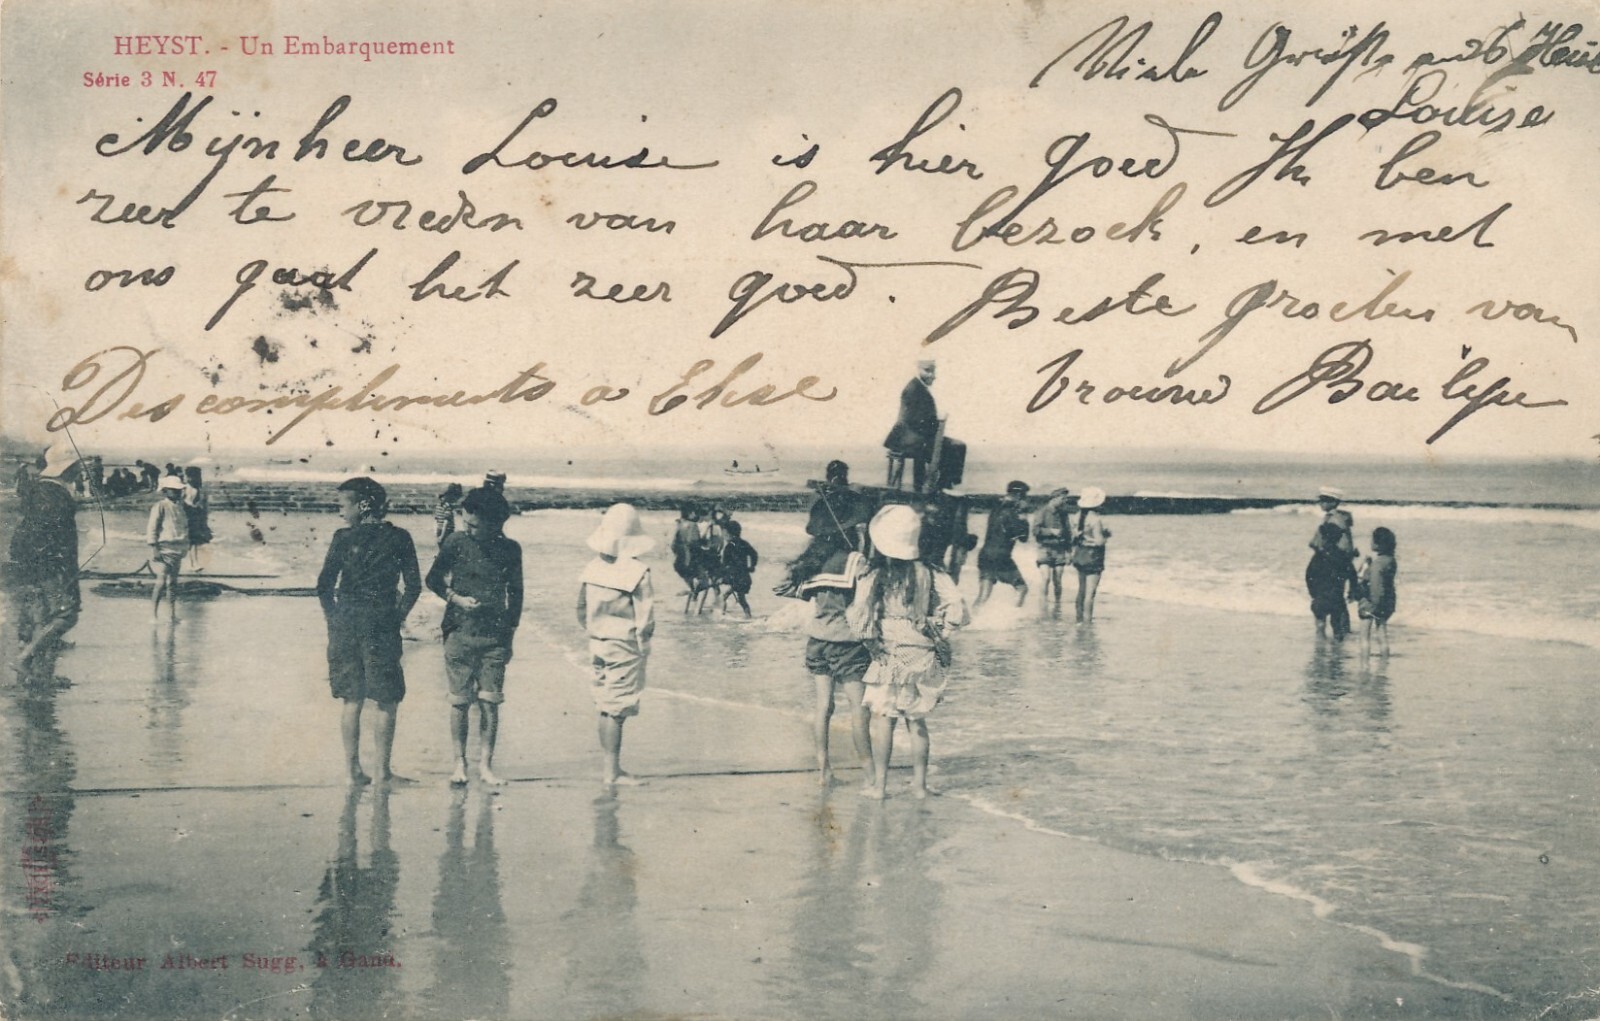 HEYST. - Un Embarquement
Série 3 N. 47
Viele Grüße aus
Louise
Mijnheer Louise is hier goed Ik ben
zeer te vreden van haar bezoek, en met
ons gaat het zeer goed.
Beste groeten van
Vrouw
Des compliments a Elise
Editeur Albert Sugg, à Gand.